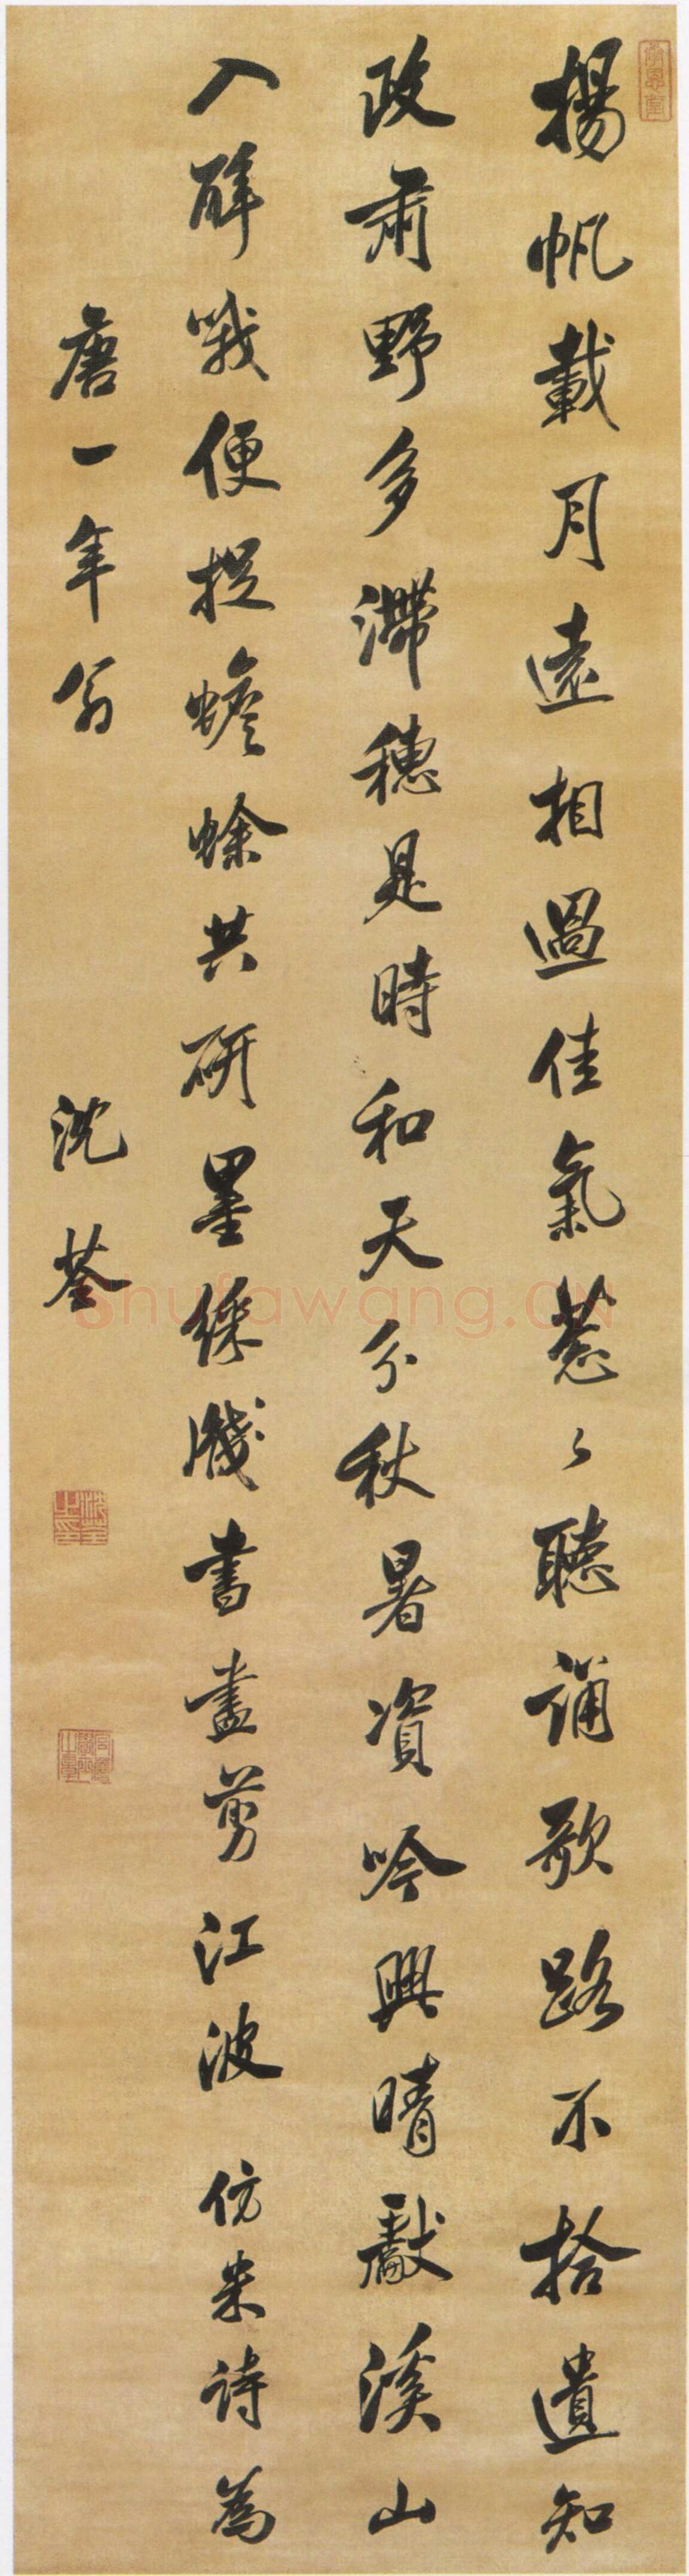 揚帆載月遠相過佳氣蔥〻聽誦歌路不拾遺知
政肅野多滯穗是時和天分秋暑資吟興晴獻溪山
入醉哦便捉蟾蜍共研墨綵牋書盡剪江波 仿米詩為
唐一年翁 沈荃
沈荃之印
shufawang.CN